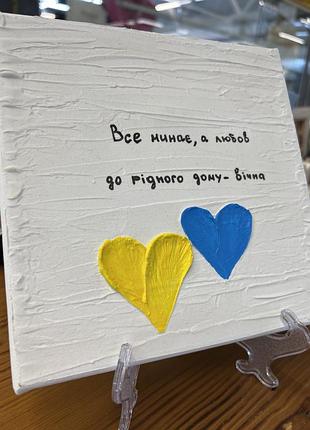 Все минає, а любов
до рідного дому - вічна